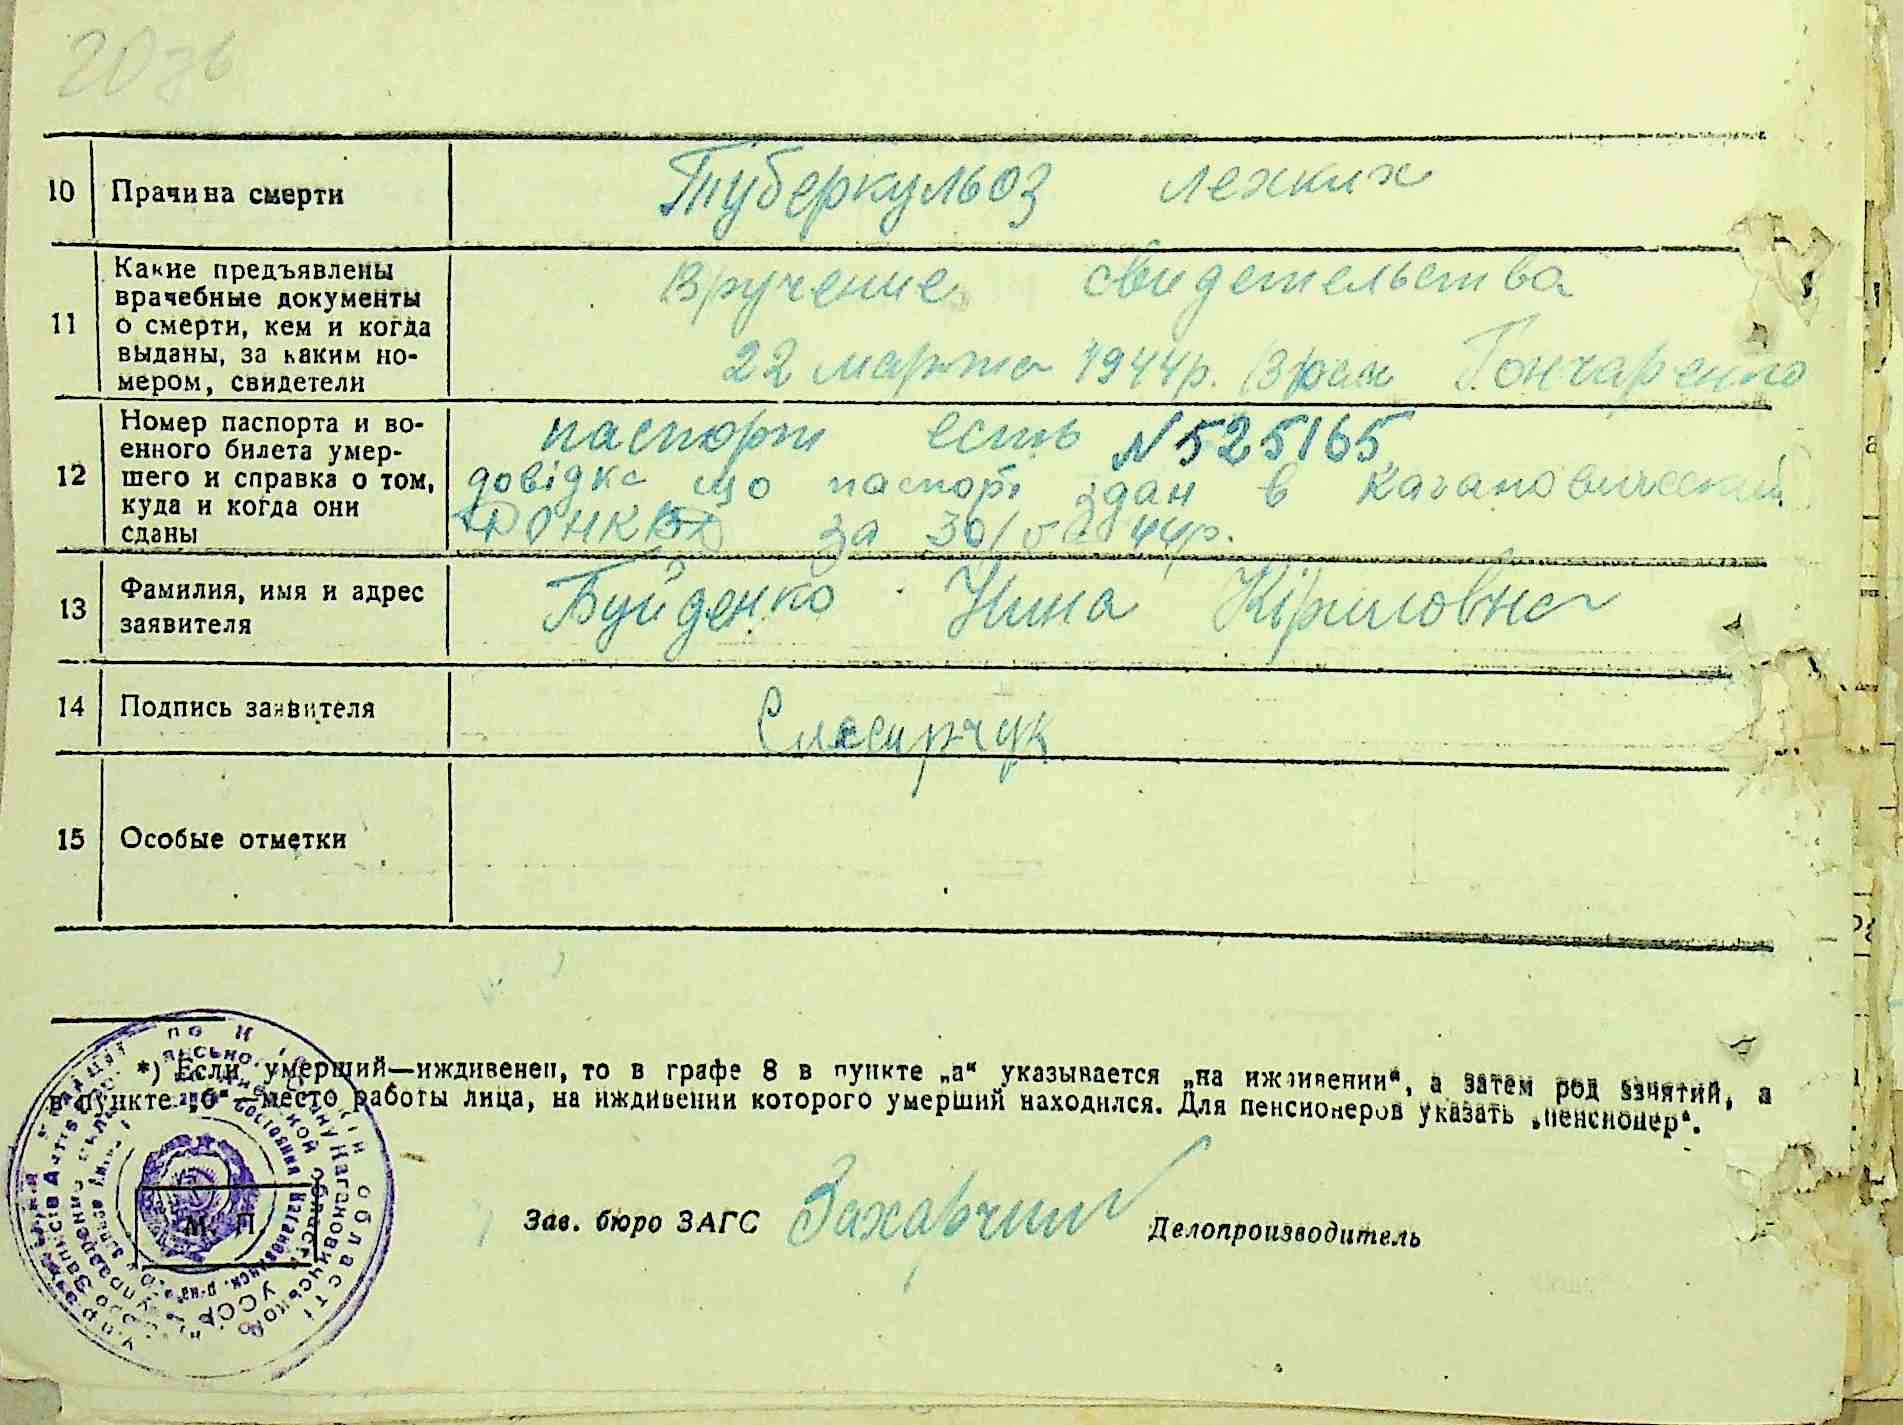 10 Прачина смерти Туберкульоз лехких
11 Какие предъявлены
врачебные документы
о смерти, кем и когда
выданы, за каким но-
мером, свидетели
Вручение свидетельства
22 марта 1944р. Врач Гончаренко
12 Номер паспорта и во-
енного билета умер-
шего и справка о том,
куда и когда они
сданы
паспорт есть N525165
довідка що паспорт здан в
за 30/ 44р.
13 Фамилия, имя и адрес
заявителя
Буйденко Нина Кіриловна
14 Подпись заявителя
15 Особые отметки
*) Если умерший—иждивенец, то в графе 8 в пункте „а“ указывается „на иждивении“, а затем род занятий, а
в пункте „б“ место работы лица, на иждивении которого умерший находился. Для пенсионеров указать „пенсионер“.
М П
Зав. бюро ЗАГС Делопроизводитель